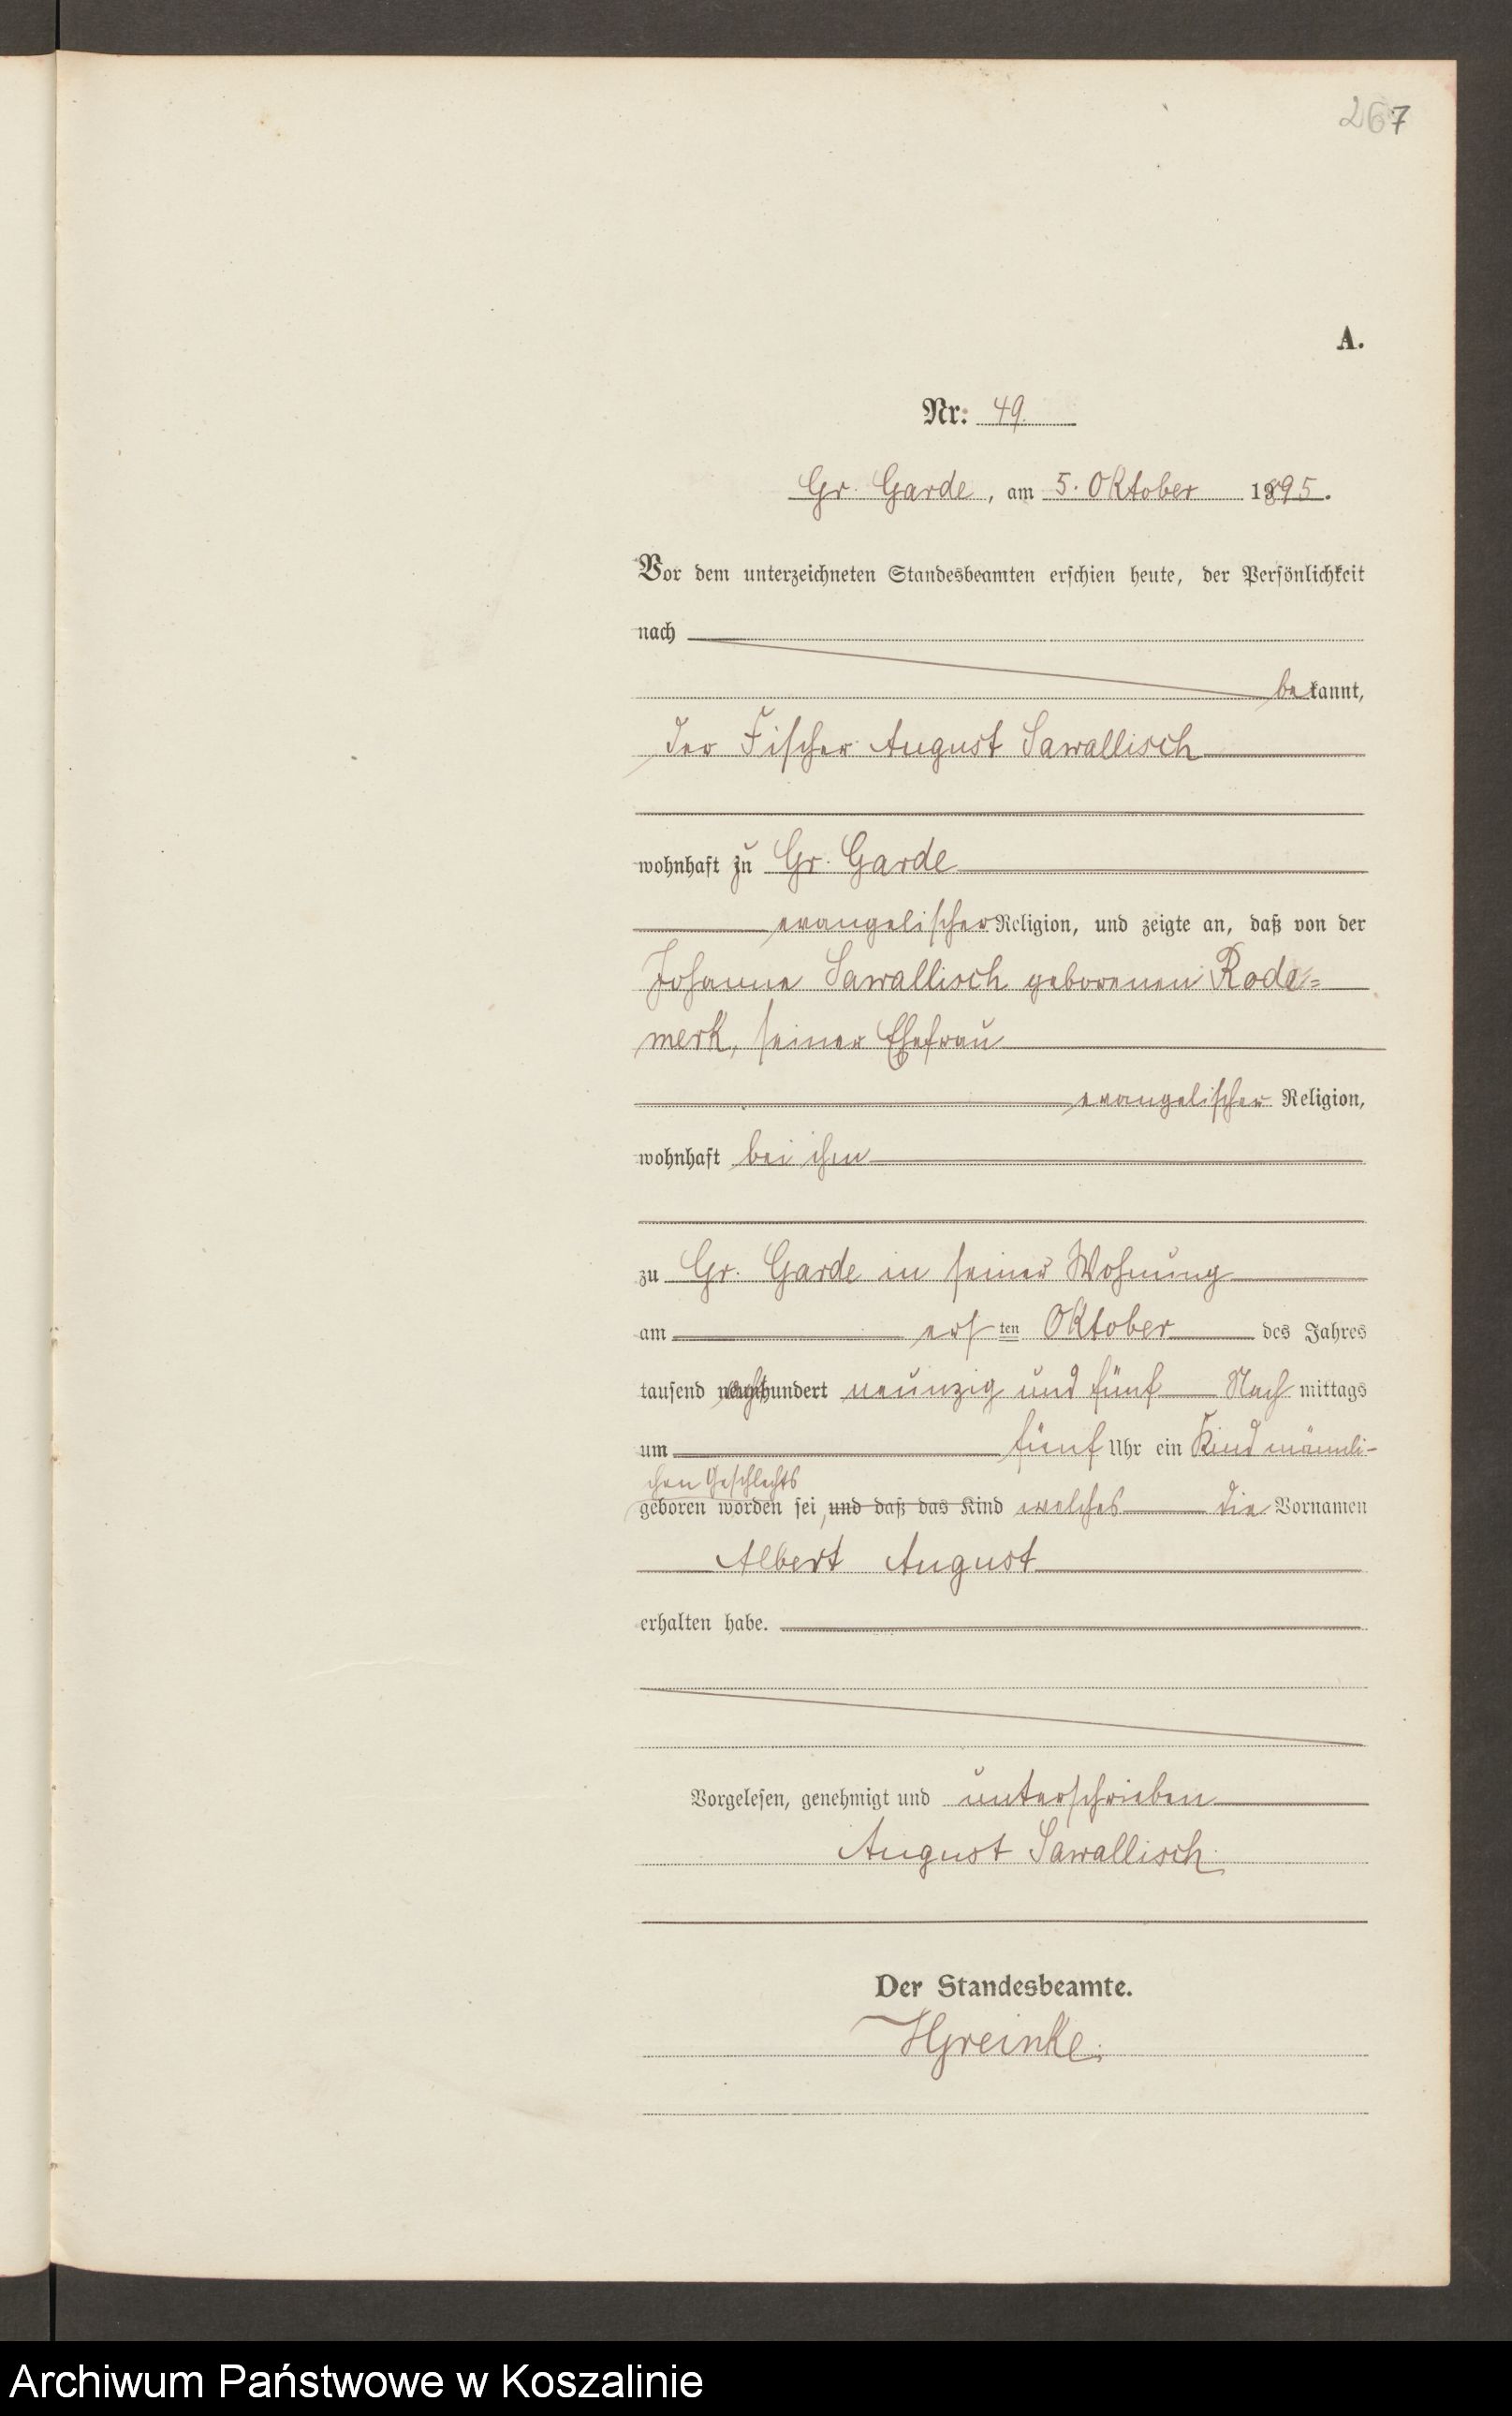 267
A.
Nr. 49.
Gr. Garde, am 5. Oktober 1895.
Vor dem unterzeichneten Standesbeamten erschien heute, der Persönlichkeit
nach
bekannt,
der Fischer August Sawallisch
wohnhaft zu Gr. Garde
evangelischer Religion, und zeigte an, daß von der
Johanne Sawallisch geborenen Rode=
merk, seiner Ehefrau
evangelischer Religion,
wohnhaft bei ihm
zu Gr. Garde in seiner Wohnung
am ersten Oktober des Jahres
tausend achthundert neunzig und fünf Nachmittags
um fünf Uhr ein Kind männli-
chen Geschlechts
geboren worden sei, und daß das Kind welches die Vornamen
Albert August
erhalten habe.
Vorgelesen, genehmigt und unterschrieben
August Sawallisch.
Der Standesbeamte.
HGreinke.
Archiwum Państwowe w Koszalinie